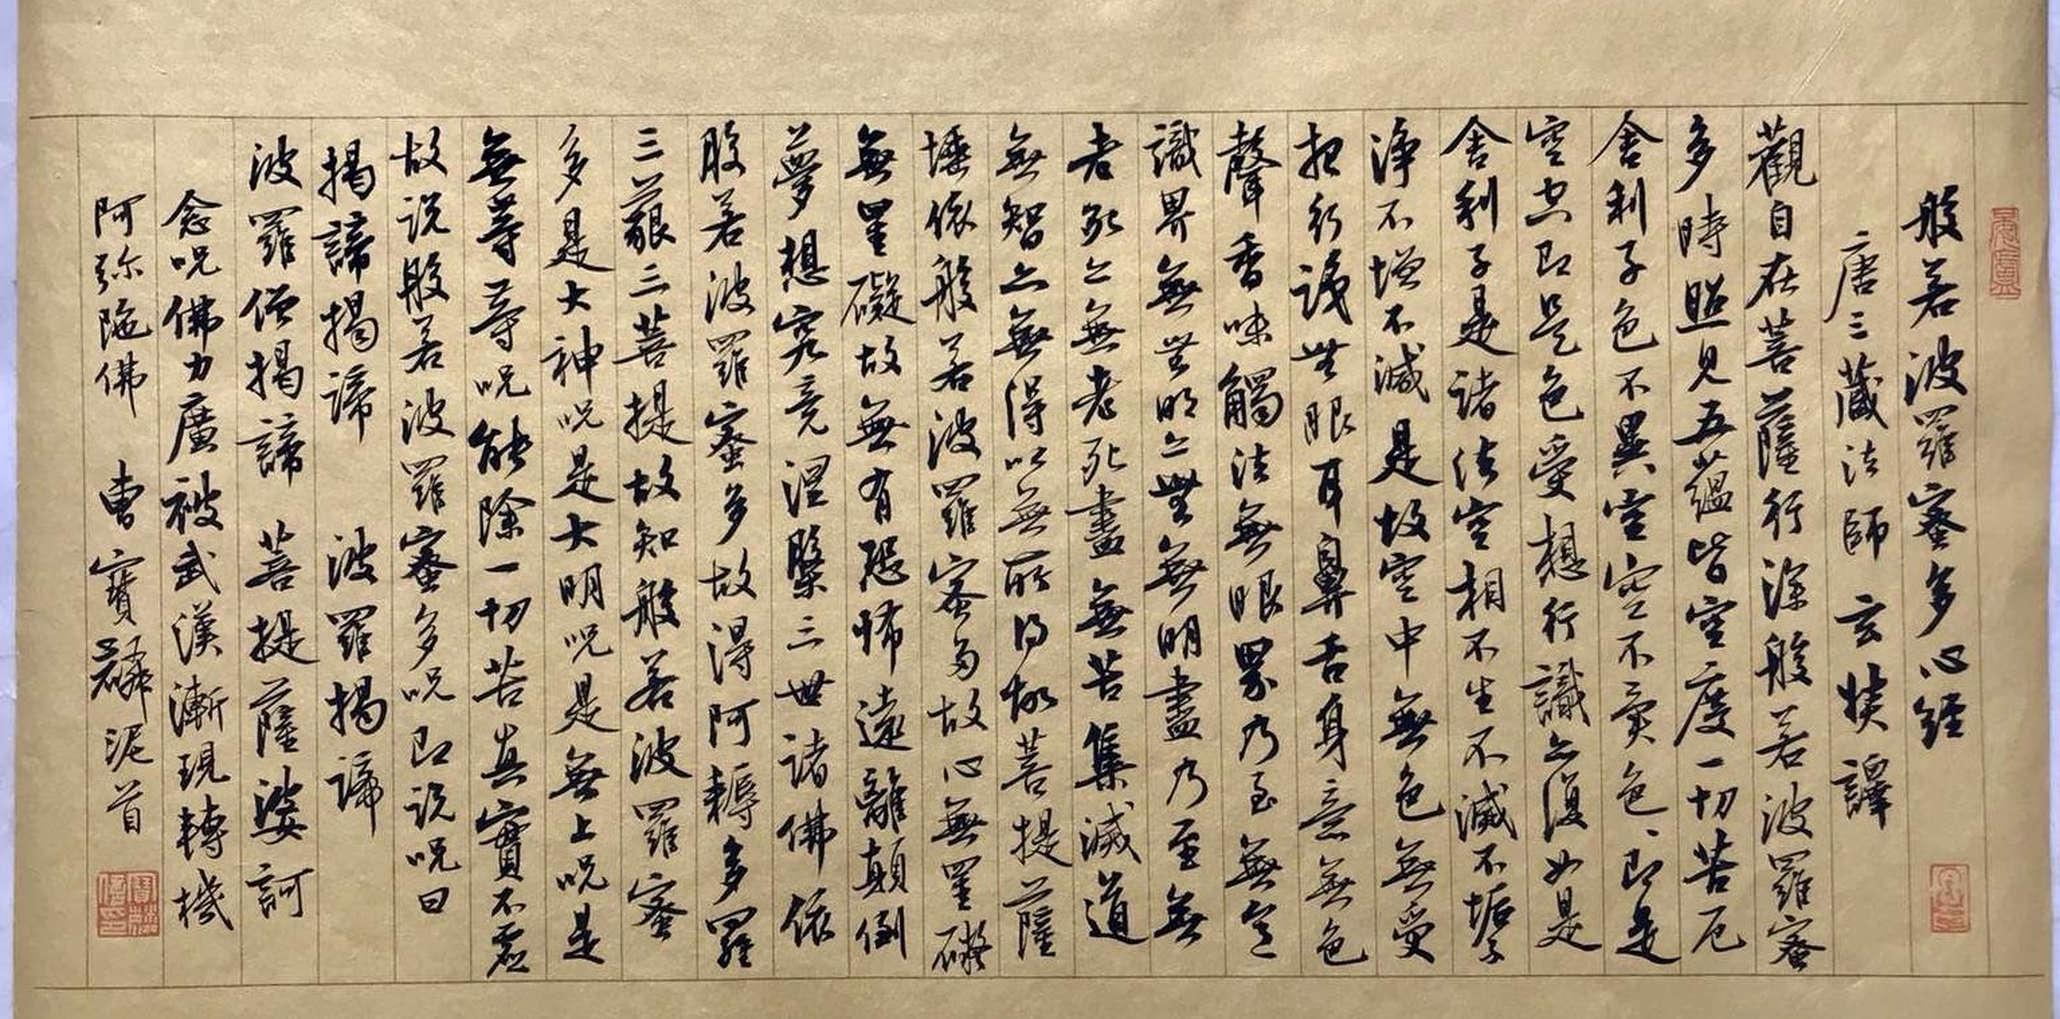 般若波羅蜜多心經
唐三藏法師玄奘譯
觀自在菩薩行深般若波羅蜜
多時照見五蘊皆空度一切苦厄
舍利子色不異空空不異色色即是
空空即是色受想行識亦復如是
舍利子是諸法空相不生不滅不垢不
淨不增不減是故空中無色無受
想行識無眼耳鼻舌身意無色
聲香味觸法無眼界乃至無意
識界無無明亦無無明盡乃至無
老死亦無老死盡無苦集滅道
無智亦無得以無所得故菩提薩
埵依般若波羅蜜多故心無罣礙
無罣礙故無有恐怖遠離顛倒
夢想究竟涅槃三世諸佛依
般若波羅蜜多故得阿耨多羅
三藐三菩提故知般若波羅蜜
多是大神咒是大明咒是無上咒是
無等等咒能除一切苦真實不虛
故说般若波羅蜜多咒即说咒曰
揭諦揭諦 波羅揭諦
波羅僧揭諦 菩提薩婆訶
念咒佛力廣被武漢漸現轉機
阿弥陁佛 曹寶麟泥首